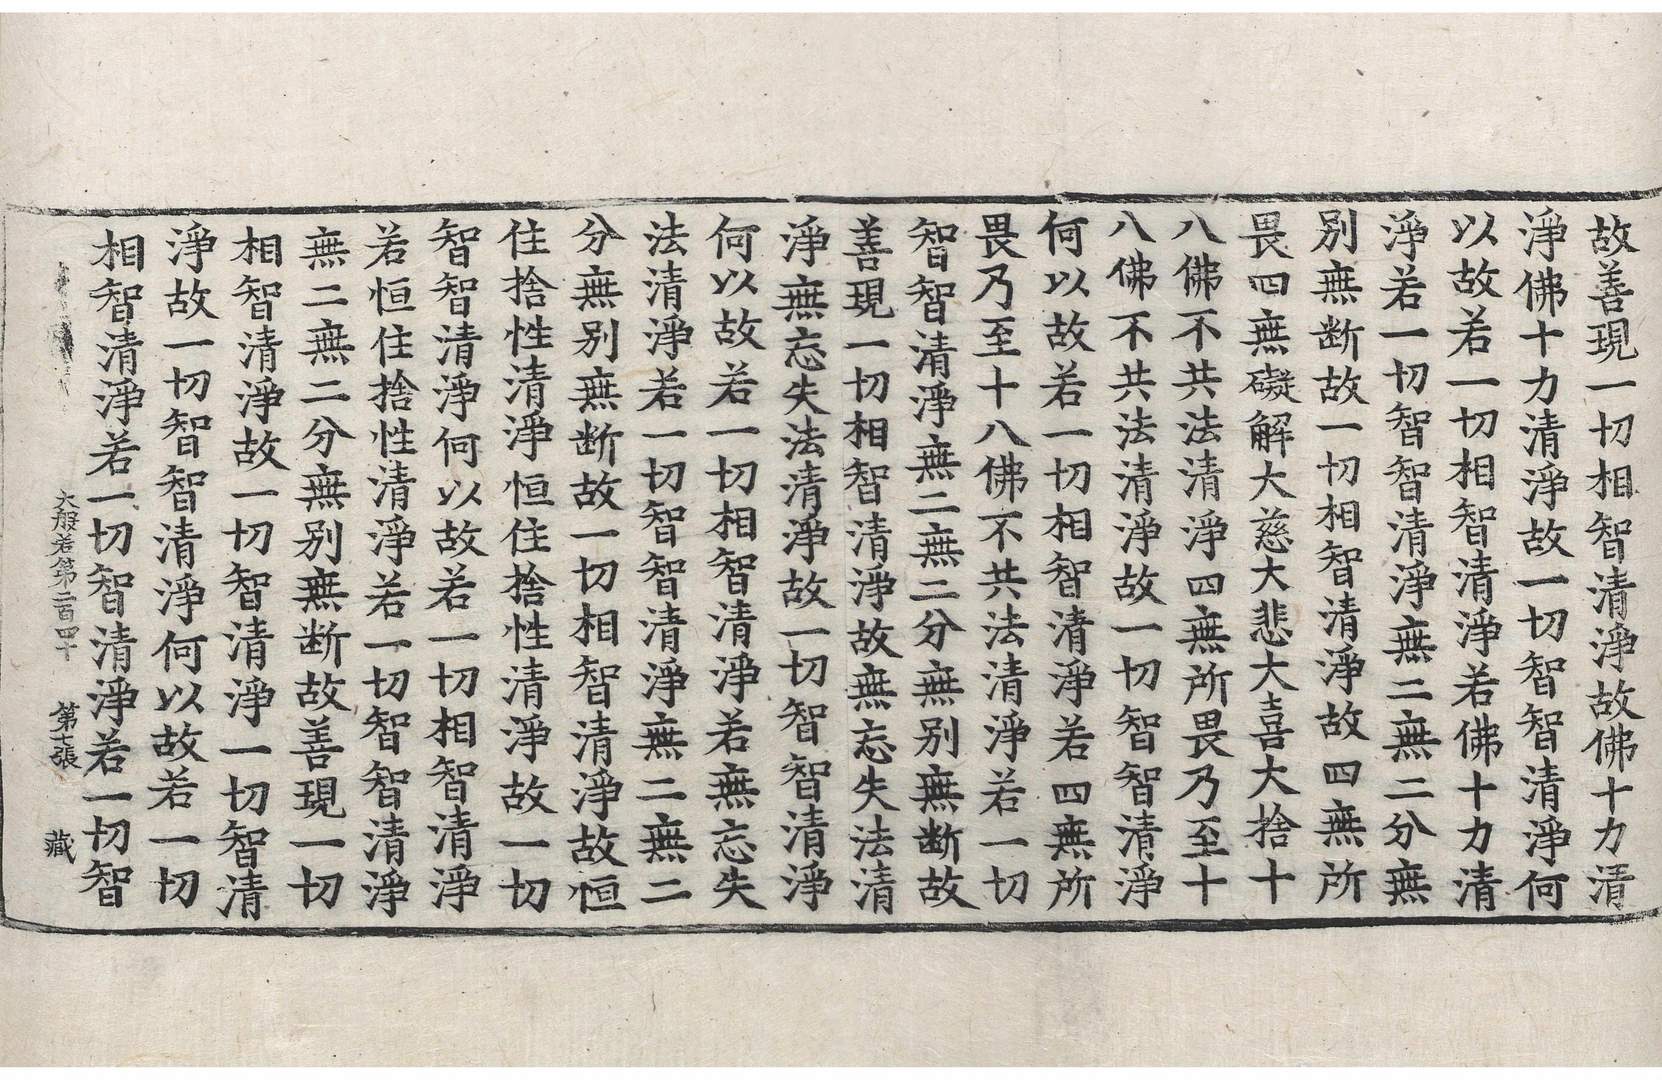 故善現一切相智清淨故佛十力清
淨佛十力清淨故一切智智清淨何
以故若一切相智清淨若佛十力清
淨若一切智智清淨無二無二分無
别無断故一切相智清淨故四無所
畏四無礙解大慈大悲大喜大捨十
八佛不共法清淨四無所畏乃至十
八佛不共法清淨故一切智智清淨
何以故若一切相智清淨若四無所
畏乃至十八佛不共法清淨若一切
智智清淨無二無二分無别無断故
善現一切相智清淨故無忘失法清
淨無忘失法清淨故一切智智清淨
何以故若一切相智清淨若無忘失
法清淨若一切智智清淨無二無二
分無别無断故一切相智清淨故恒
住捨性清淨恒住捨性清淨故一切
智智清淨何以故若一切相智清淨
若恒住捨性清淨若一切智智清淨
無二無二分無别無断故善現一切
相智清淨故一切智清淨一切智清
淨故一切智智清淨何以故若一切
相智清淨若一切智清淨若一切智
大般若第二百四十 第七張 藏